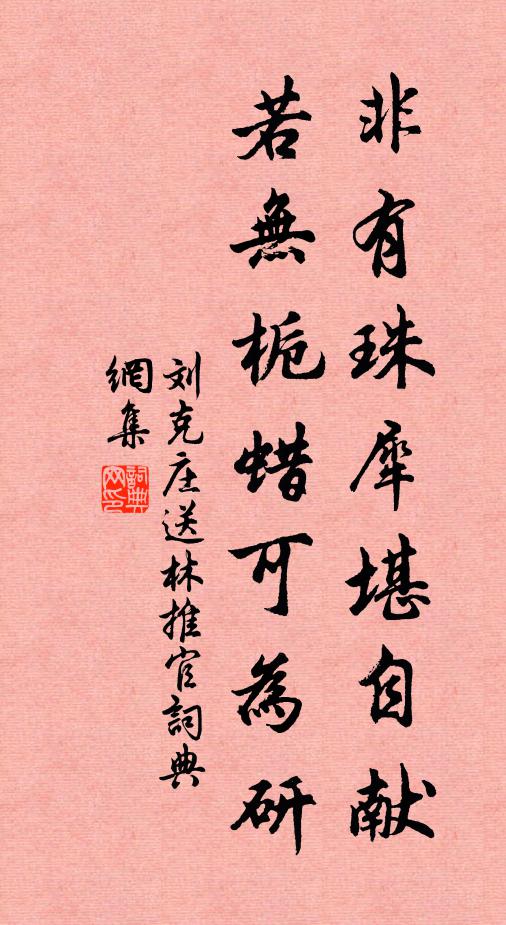 非有珠犀堪自献
若無栀蜡可為研
刘克庄送林推官詞典
網集
詞典
网印